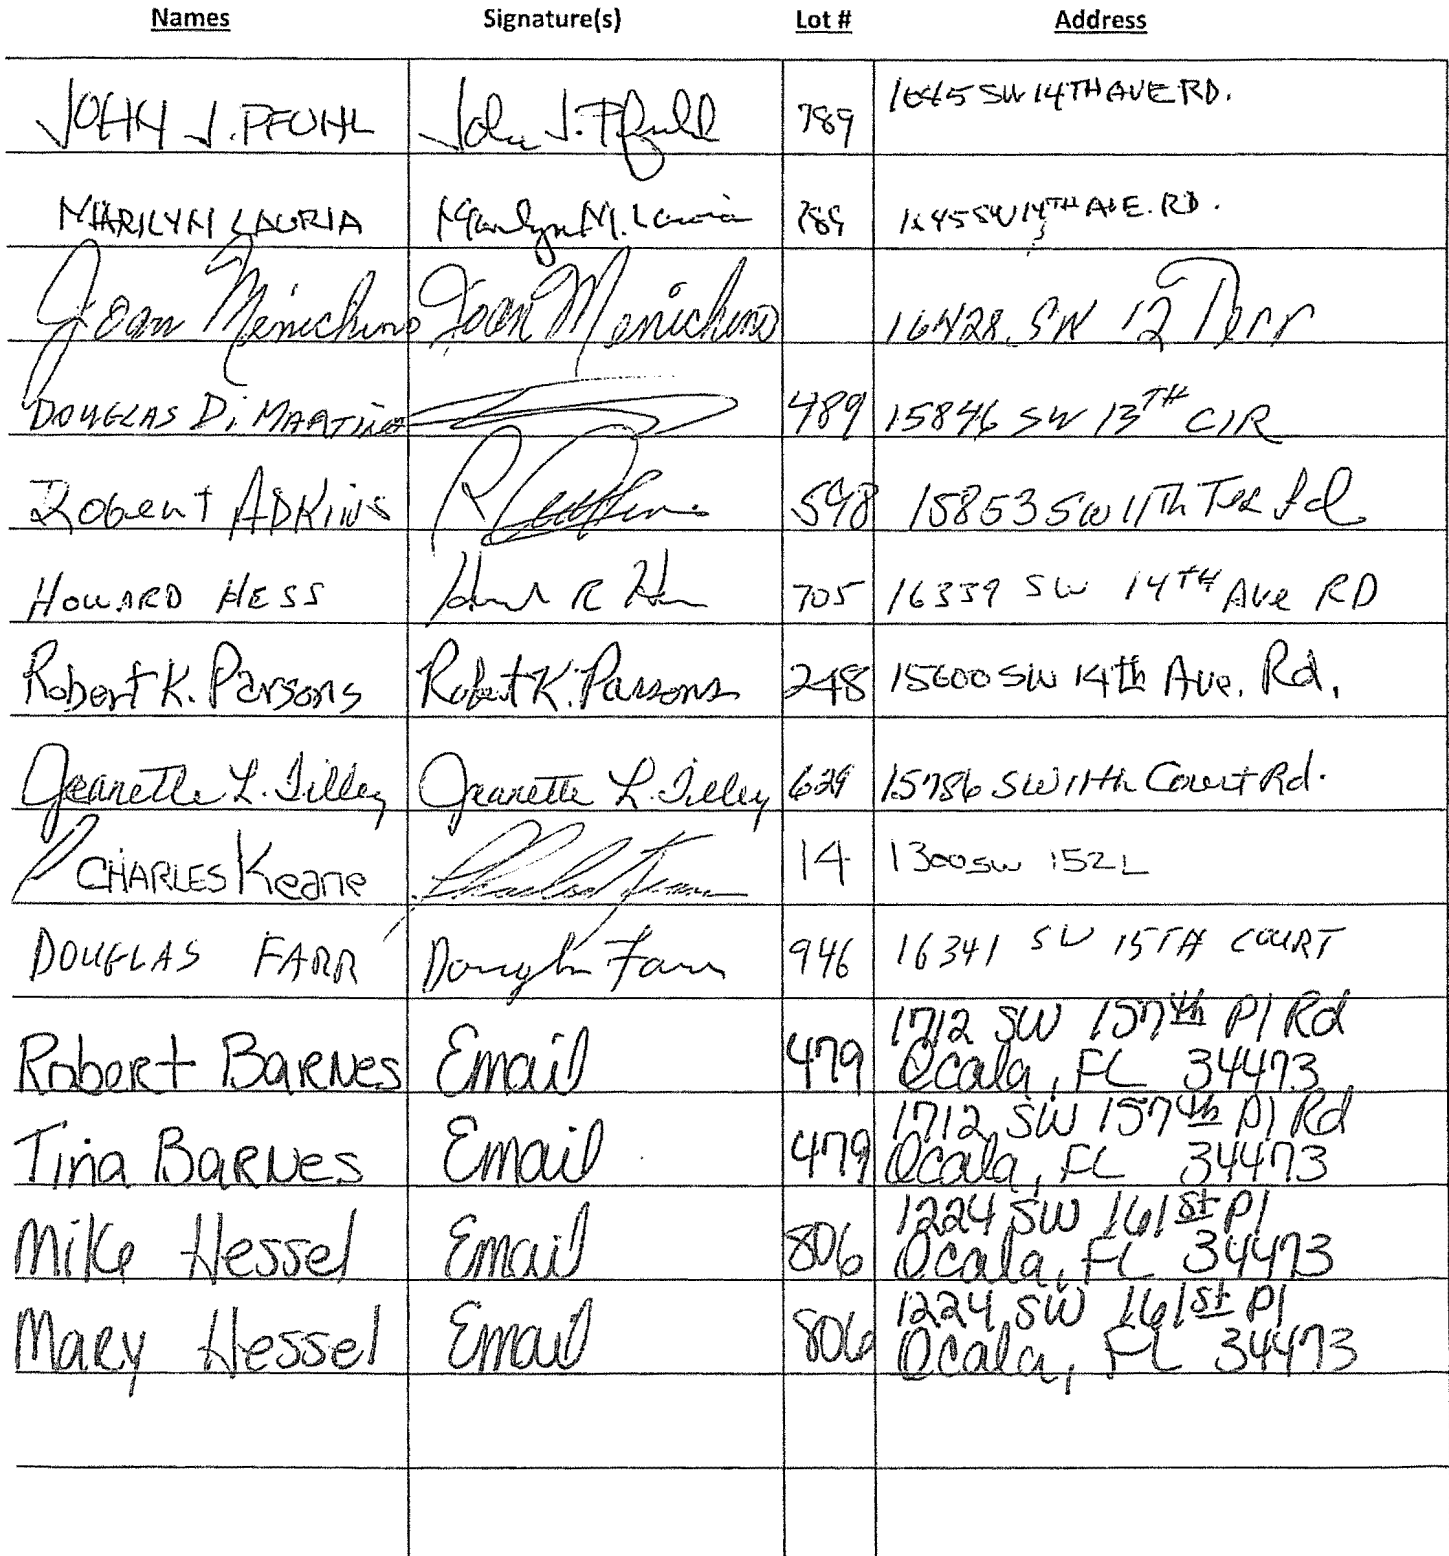 Names Signature(s) Lot # Address
JOHN J. PFUHL John J. Pfuhl 789 1645 SW 14TH AVE RD.
MARILYN LAURIA Marilyn M. Lauria 789 1645 SW 14TH AVE. RD.
Joan Menichino Joan Menichino 16428 SW 12 Terr
DOUGLAS Di MARTINO 489 15846 SW 13TH CIR
Robert ADKins 598 15853 SW 11Th Ter Rd
HOWARD HESS 705 16339 SW 14TH Ave RD
Robert K. Parsons Robert K. Parsons 248 15600 SW 14th Ave. Rd.
Jeanette L. Tilley Jeanette L. Tilley 629 15786 SW 11th Court Rd.
CHARLES Keane Charles Keane 14 1300 SW 152 L
DOUGLAS FARR Dougl Farr 946 16341 SW 15TH COURT
Robert BARNes Email 479 1712 SW 157th Pl Rd
Ocala, FL 34473
Tina BARNes Email 479 1712 SW 157th Pl Rd
Ocala, FL 34473
Mike Hessel Email 806 1224 SW 161st Pl
Ocala, FL 34473
Mary Hessel Email 806 1224 SW 161st Pl
Ocala, FL 34473